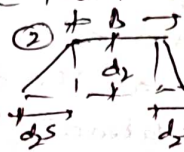 ② B
d₂
d₂S d₂